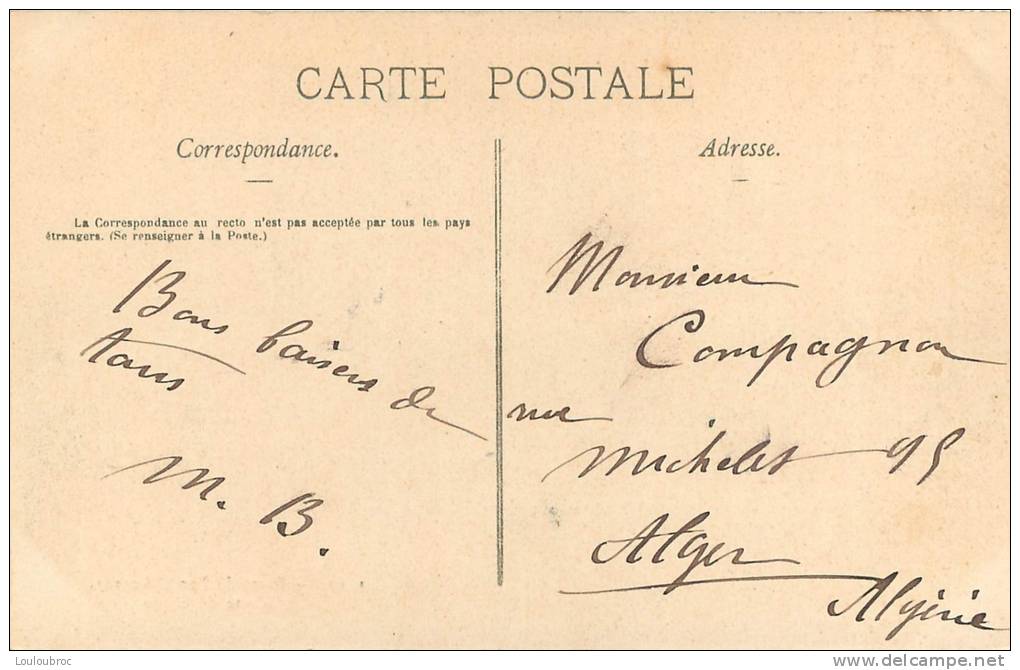 CARTE POSTALE
Correspondance.
La Correspondance au recto n'est pas acceptée par tous les pays
étrangers. (Se renseigner à la Poste.)
Bons baisers de
tous
M. B.
Adresse.
Monsieur
Compagnon
rue
Michelet 95
Alger
Algérie
© Louloubroc
http://www.delcampe.net